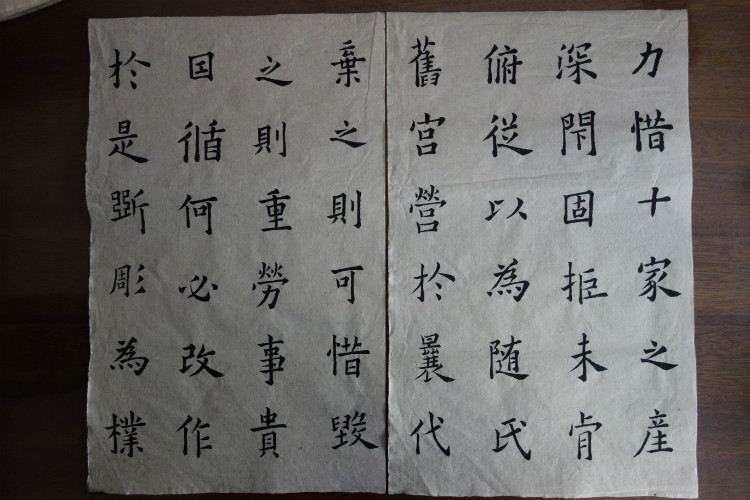 力惜十家之産
深閇固拒未肯
俯從以為随氏
舊宮營於曩代
棄之則可惜毀
之則重勞事貴
因循何必改作
於是斵彫為樸